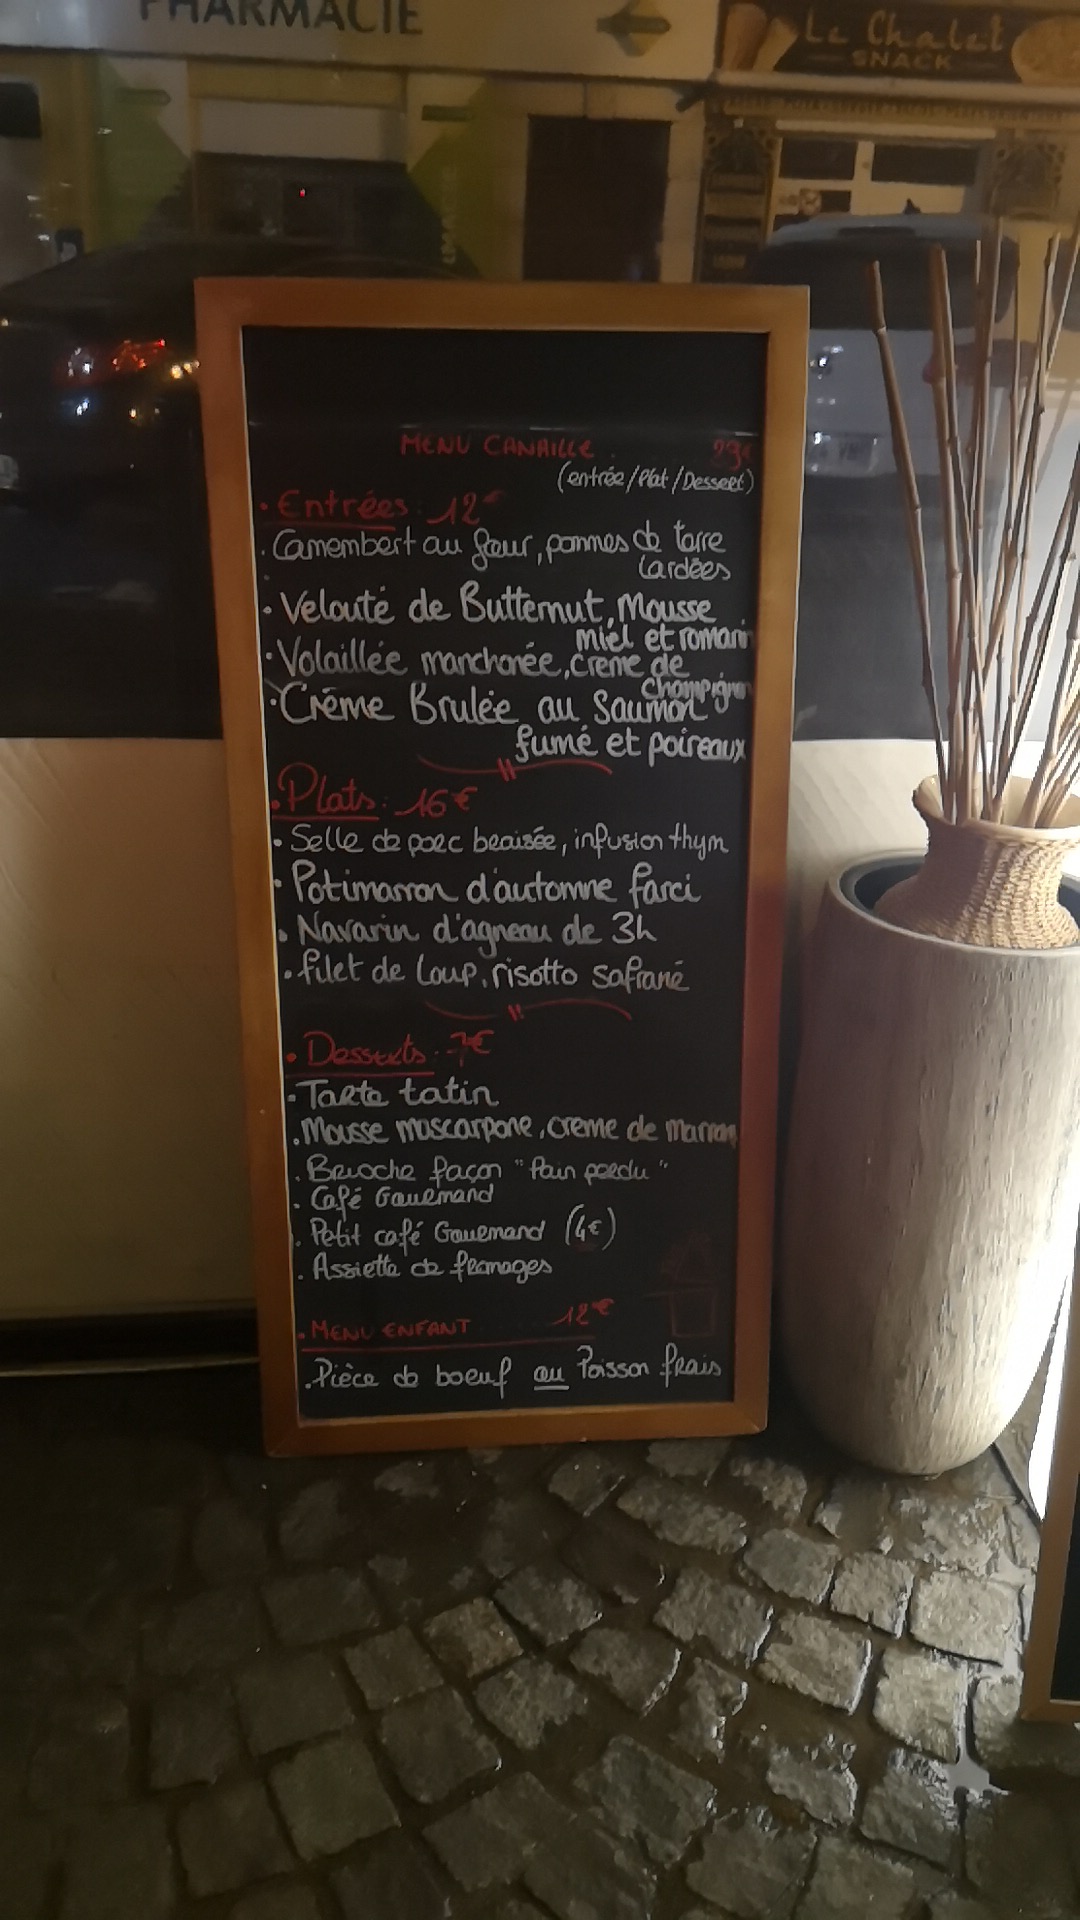 PHARMACIE
Le Chalet
SNACK
MENU CANAILLE 29€
(entrée/Plat/Dessert)
. Entrées : 12€
. Camembert au four, pommes de terre
lardées
. Velouté de Butternut, Mousse
miel et romarin
. Volaillée manchonée, crème de
champignon
. Crème Brulée au Saumon
fumé et poireaux
. Plats : 16€
. Selle de porc braisée, infusion thym
. Potimarron d'automne farci
. Navarin d'agneau de 3h
. filet de Loup, risotto safrané
. Desserts : 7€
. Tarte tatin
. Mousse mascarpone, creme de marron
. Brioche façon "Pain perdu"
. Café Gourmand
. Petit café Gourmand (4€)
. Assiette de fromages
. MENU ENFANT 12€
. Pièce de boeuf ou Poisson frais